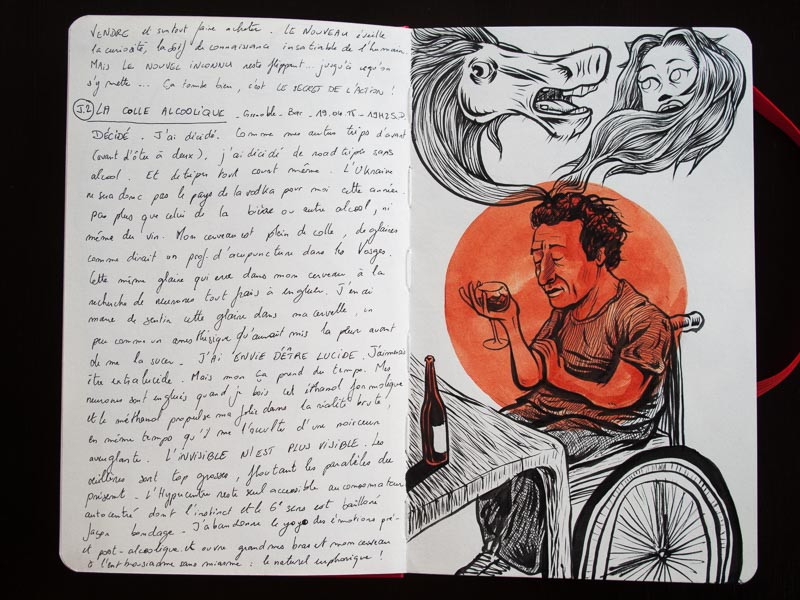 VENDRE et surtout faire acheter. LE NOUVEAU éveille
la curiosité, la soif de connaissance insatiable de l'humain
MAIS LE NOUVEL INCONNU reste flippant... jusqu'à ce qu'on
s'y mette... Ça tombe bien, c'est LE SECRET DE L'ACTION !
J.2 LA COLLE ALCOOLIQUE - Grenoble - Bar - 19.04.15 - 19H25
DÉCIDÉ. J'ai décidé. Comme mes autres trips d'avant
(avant d'être à deux), j'ai décidé de road triper sans
alcool. Et de triper tout court même. L'Ukraine
ne sera donc pas le pays de la vodka pour moi cette année
pas plus que celui de la bière ou autre alcool, ni
même du vin. Mon cerveau est plein de colle, de glaires
comme dirait un prof. d'acupuncture dans les Vosges.
Cette même glaire qui erre dans mon cerveau à la
recherche de neurones tout frais à engluer. J'en ai
marre de sentir cette glaire dans ma cervelle, un
peu comme un anesthésique qu'aurait mis la pieuvre avant
de me la sucer. J'AI ENVIE D'ÊTRE LUCIDE. J'aimerais
être extralucide. Mais mon ça prend du temps. Mes
neurones sont englués quand je bois cet éthanol formolique
et le méthanol propulse ma folie dans la réalité brute,
en même temps qu'il me l'occulte d'une noirceur
aveuglante. L'INVISIBLE N'EST PLUS VISIBLE. Les
œillères sont trop grosses, floutant les parallèles du
présent. L'Hypercentre reste seul accessible au consommateur
autocentré dont l'instinct et le 6e sens est bâillonné
façon bondage. J'abandonne le yoyo des émotions pré-
et post-alcoolique et ouvre grand mes bras et mon cerveau
à l'enthousiasme sans miasme : le naturel euphorique !